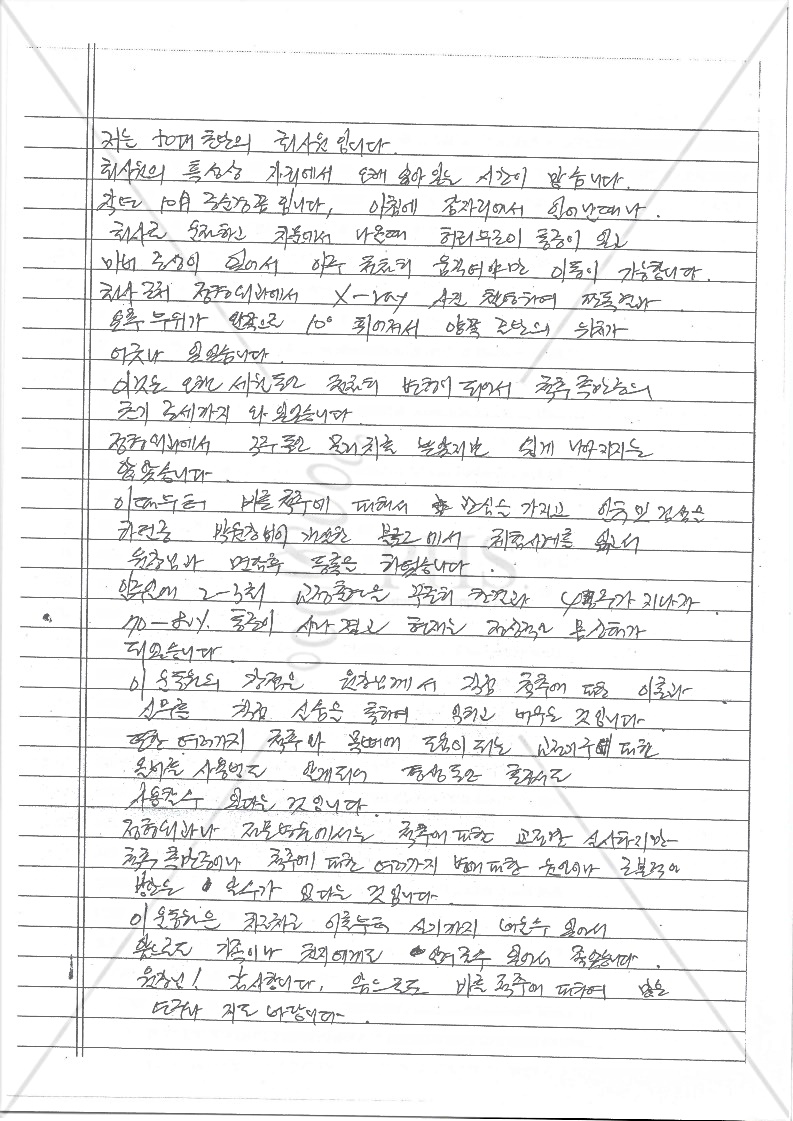 저는 50대 초반의 회사원 입니다.
회사원의 특성상 자리에서 오래 앉아 있는 시간이 많습니다.
작년 10月 중순경쯤 됩니다, 아침에 잠자리에서 일어난때나.
회사로 운전하고 차문에서 나올때 허리무릎이 통증이 있고
마비 증상이 있어서 아주 천천히 움직여야만 이동이 가능합니다.
회사 근처 정형외과에서 X-ray 사진 촬영하여 판독결과
오른 부위가 안쪽으로 10° 휘어져서 양쪽 골반의 위치가
어긋나 있었습니다.
이것은 오랜 세월동안 천천히 변형이 되어서 척추측만증의
초기 증세까지 와 있었습니다.
정형외과에서 2주 동안 물리치료 받았지만 쉽게 나아지지는
않았습니다.
이때부터 바른척추에 대해서 관심을 가지고 인터넷 검색을
하던중 박원장님이 개설한 블로그에서 체험사례를 읽고서
원장님과 면담후 등록을 하였습니다.
일주일에 2-3회 교정운동을 꾸준히 한결과 4개월가 지나자.
70-80% 통증이 사라졌고 현재는 정상적인 몸상태가
되었습니다.
이 운동원의 장점은 원장님께서 직접 척추에 대한 이론과
실무를 직접 실습을 통하여 익히고 배우는 것입니다.
또한 여러가지 척추와 목뼈에 도움이 되는 교정기구에 대한
올바른 사용법도 알게되어 평생동안 혼자서도
사용할수 있다는 것입니다.
정형외과나 전문병원에서는 척추에 대한 교정만 실시하지만
척추측만증이나 척추에 대한 여러가지 병에대한 원인이나 근본적인
방안을 알수가 없다는 것입니다.
이 운동원은 차근차근 이론부터 실기까지 배울수 있어서
앞으로도 가족이나 친지에게도 알려줄수 있어서 좋았습니다.
원장님! 감사합니다. 앞으로도 바른척추에 대하여 많은
도움과 지도 바랍니다.